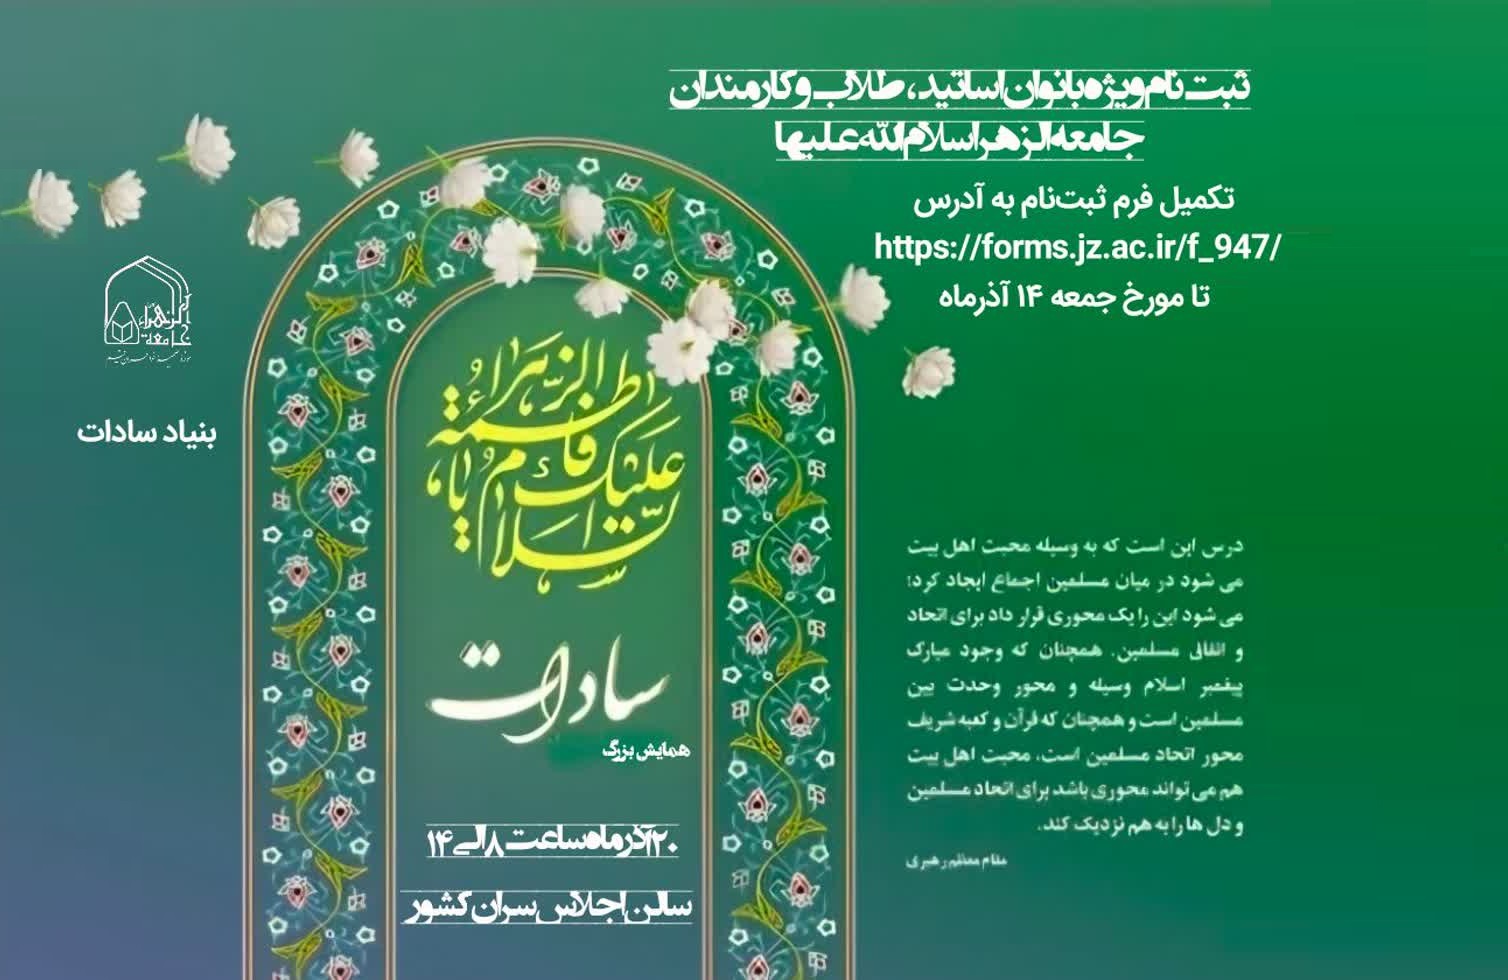 ثبت نام ویژه بانوان اساتید، طلاب و کارمندان
جامعه الزهرا سلام الله علیها
تکمیل فرم ثبت‌نام به آدرس
https://forms.jz.ac.ir/f_947/
تا مورخ جمعه ۱۴ آذرماه
جامعة الزهراء
بنیاد سادات
السلام علیک یا فاطمة الزهراء
سادات
همایش بزرگ
۲۰ آذرماه ساعت ۸ الی ۱۴
سالن اجلاس سران کشور
درس این است که به وسیله محبت اهل بیت
می شود در میان مسلمین اجماع ایجاد کرد؛
می شود این را یک محوری قرار داد برای اتحاد
و اتفاق مسلمین. همچنان که وجود مبارک
پیغمبر اسلام وسیله و محور وحدت بین
مسلمین است و همچنان که قرآن و کعبه شریف
محور اتحاد مسلمین است، محبت اهل بیت
هم می تواند محوری باشد برای اتحاد مسلمین
و دل ها را به هم نزدیک کند.
مقام معظم رهبری